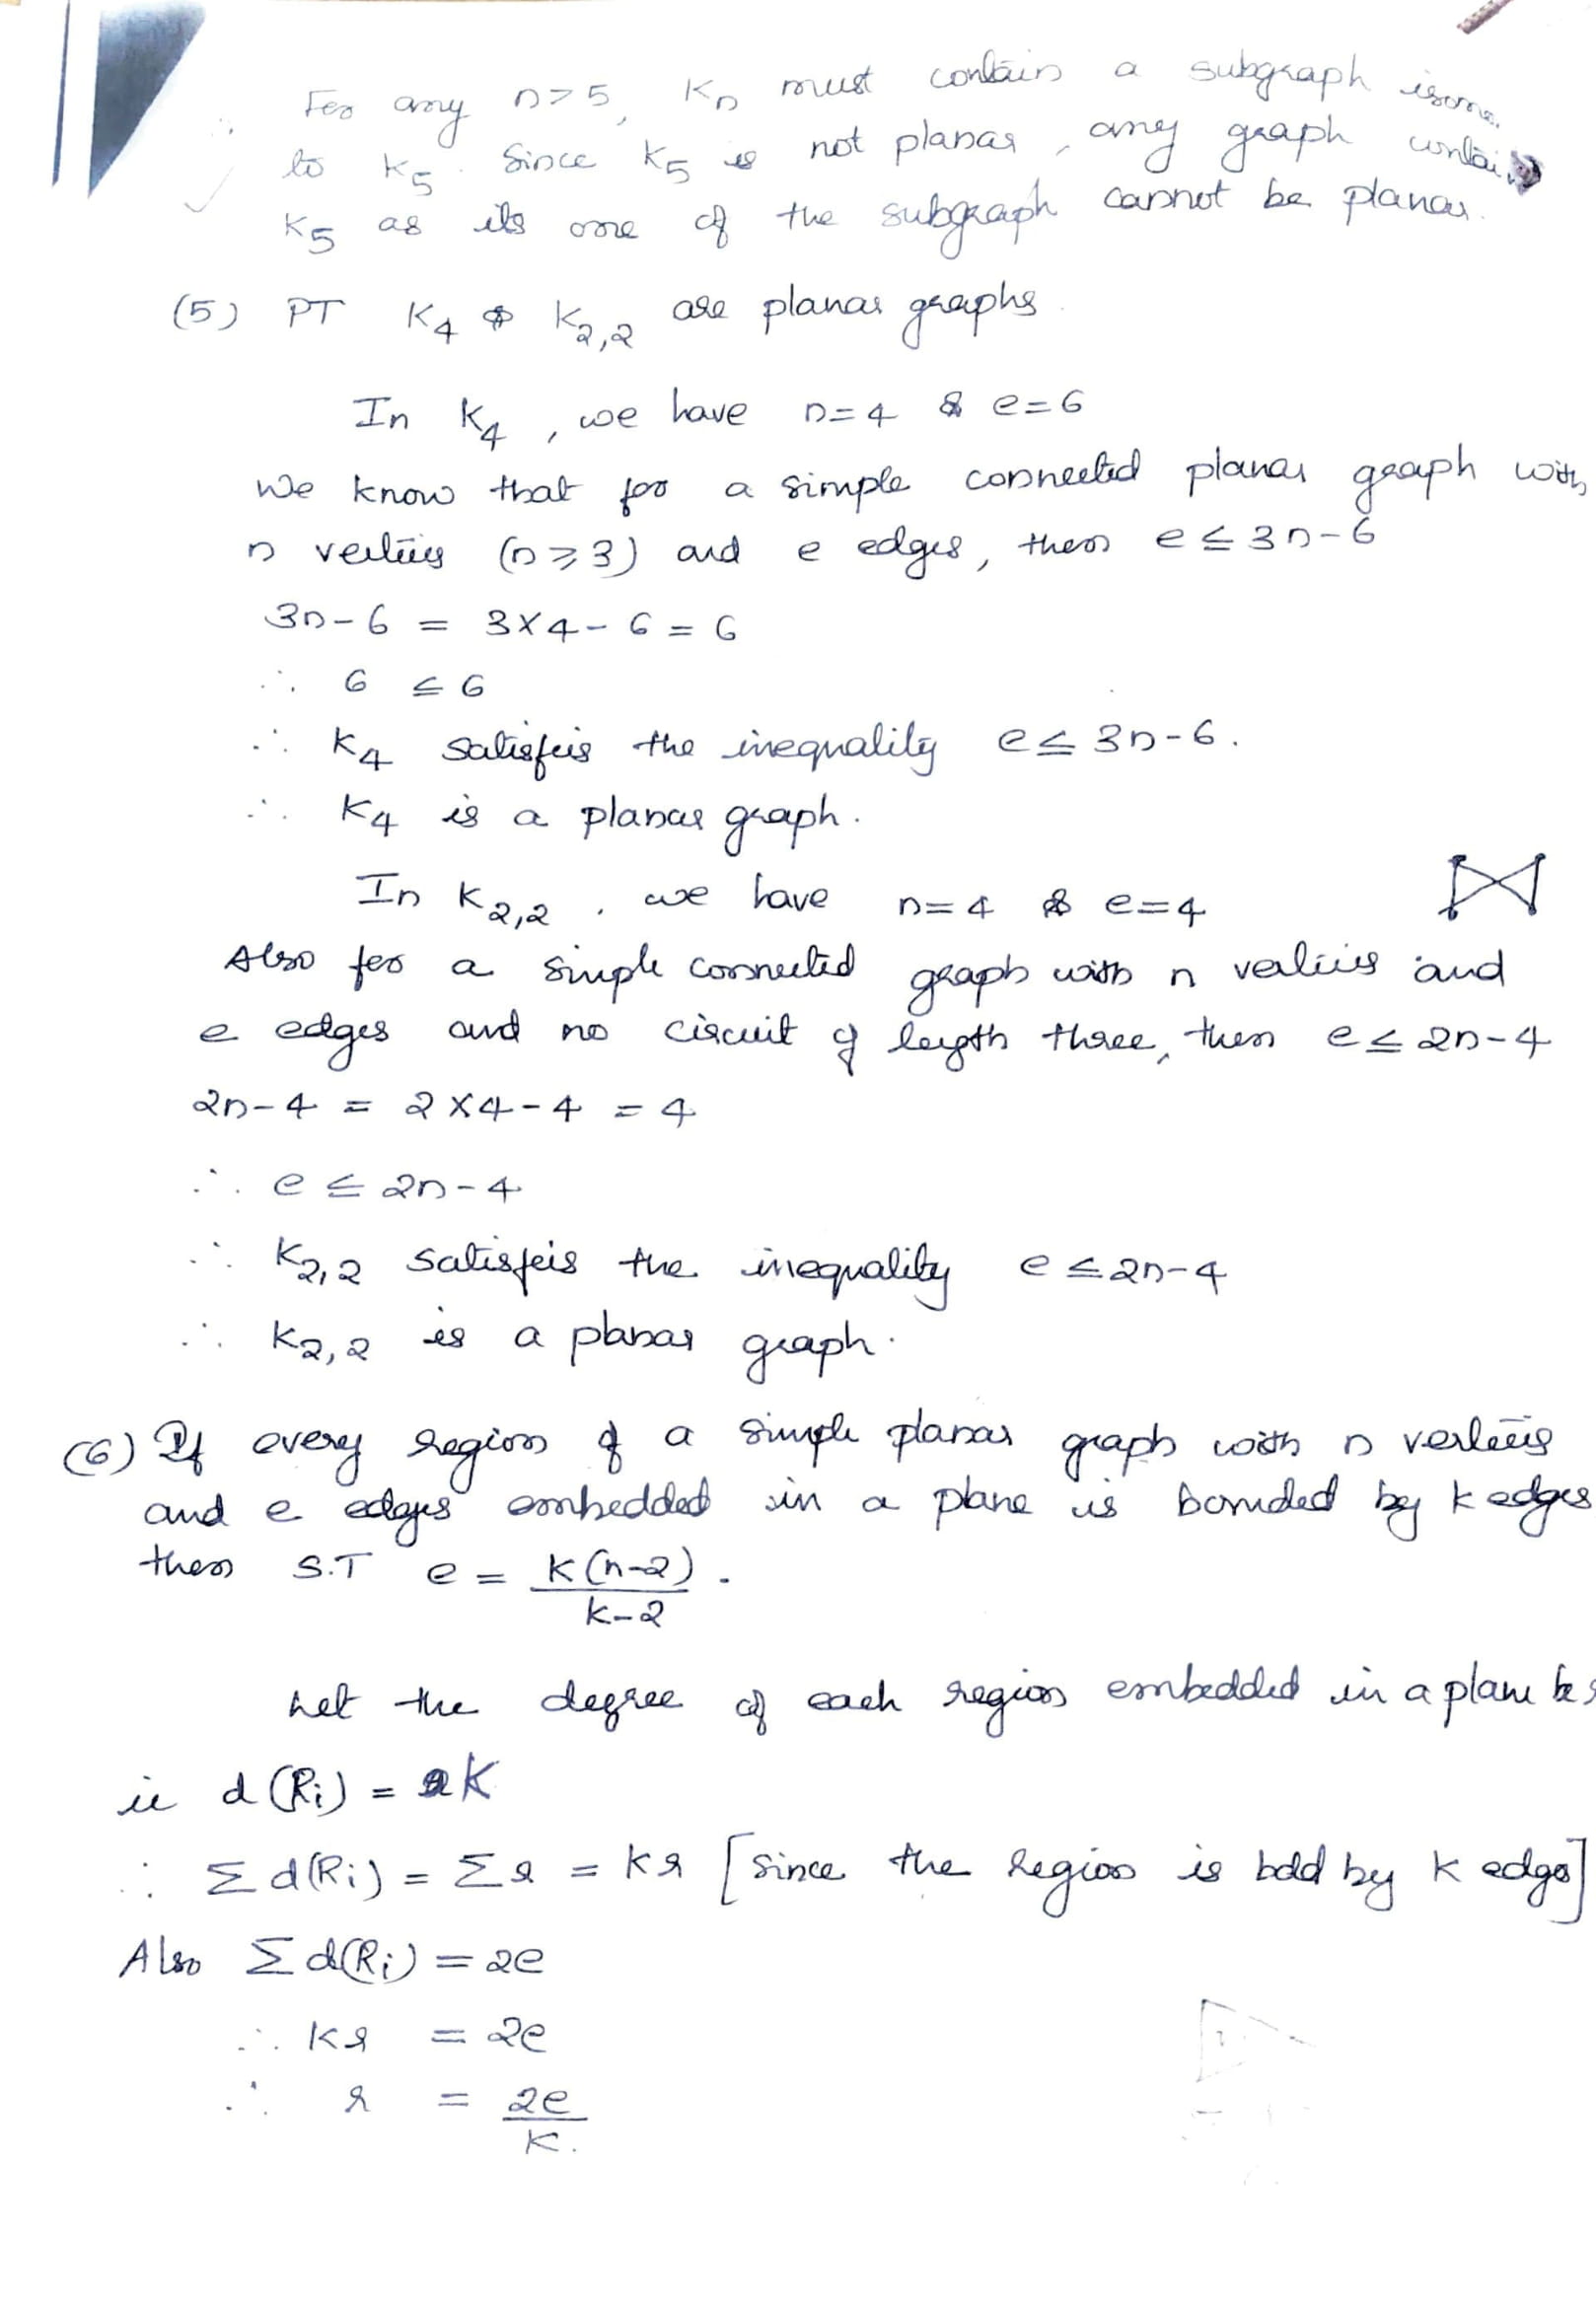 For any n>5, Kn must contain a subgraph isomo
to K5. Since K5 is not planar, any graph contain
K5 as its one of the subgraph cannot be planar.
(5) PT K4 & K2,2 are planar graphs.
In K4, we have n=4 & e=6
We know that for a simple connected planar graph with
n vertices (n≥3) and e edges, then e ≤ 3n-6
3n-6 = 3×4-6 = 6
∴ 6 ≤ 6
∴ K4 satisfeis the inequality e ≤ 3n-6.
∴ K4 is a planar graph.
In K2,2, we have n=4 & e=4
Also for a simple connected graph with n vertices and
e edges and no circuit of length three, then e ≤ 2n-4
2n-4 = 2×4-4 = 4
∴ e ≤ 2n-4
∴ K2,2 satisfeis the inequality e ≤ 2n-4
∴ K2,2 is a planar graph.
(6) If every region of a simple planar graph with n vertices
and e edges embedded in a plane is bounded by k edges
then S.T e = K(n-2)/k-2.
Let the degree of each region embedded in a plane be
ie d(Ri) = K
∴ Σd(Ri) = Σr = kr [since the region is bdd by k edgs]
Also Σd(Ri) = 2e
∴ Kr = 2e
∴ r = 2e/K.